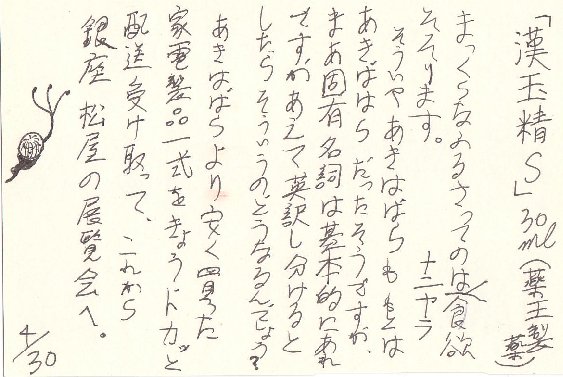 「漢玉精S」30ml(薬王製薬)
まっくらなふるさってのは食欲
そそります。　ナニヤラ
そういやあきはばらももとは
あきばはらだったそうですが、
まあ固有名詞は基本的にあれ
ですがあえて英訳し分けると
したらそういうの、どうなるんでしょう?
あきはばらより安く買った
家電製品一式をきょうドカッと
配送受け取って、これから
銀座 松屋の展覧会へ。
4/30